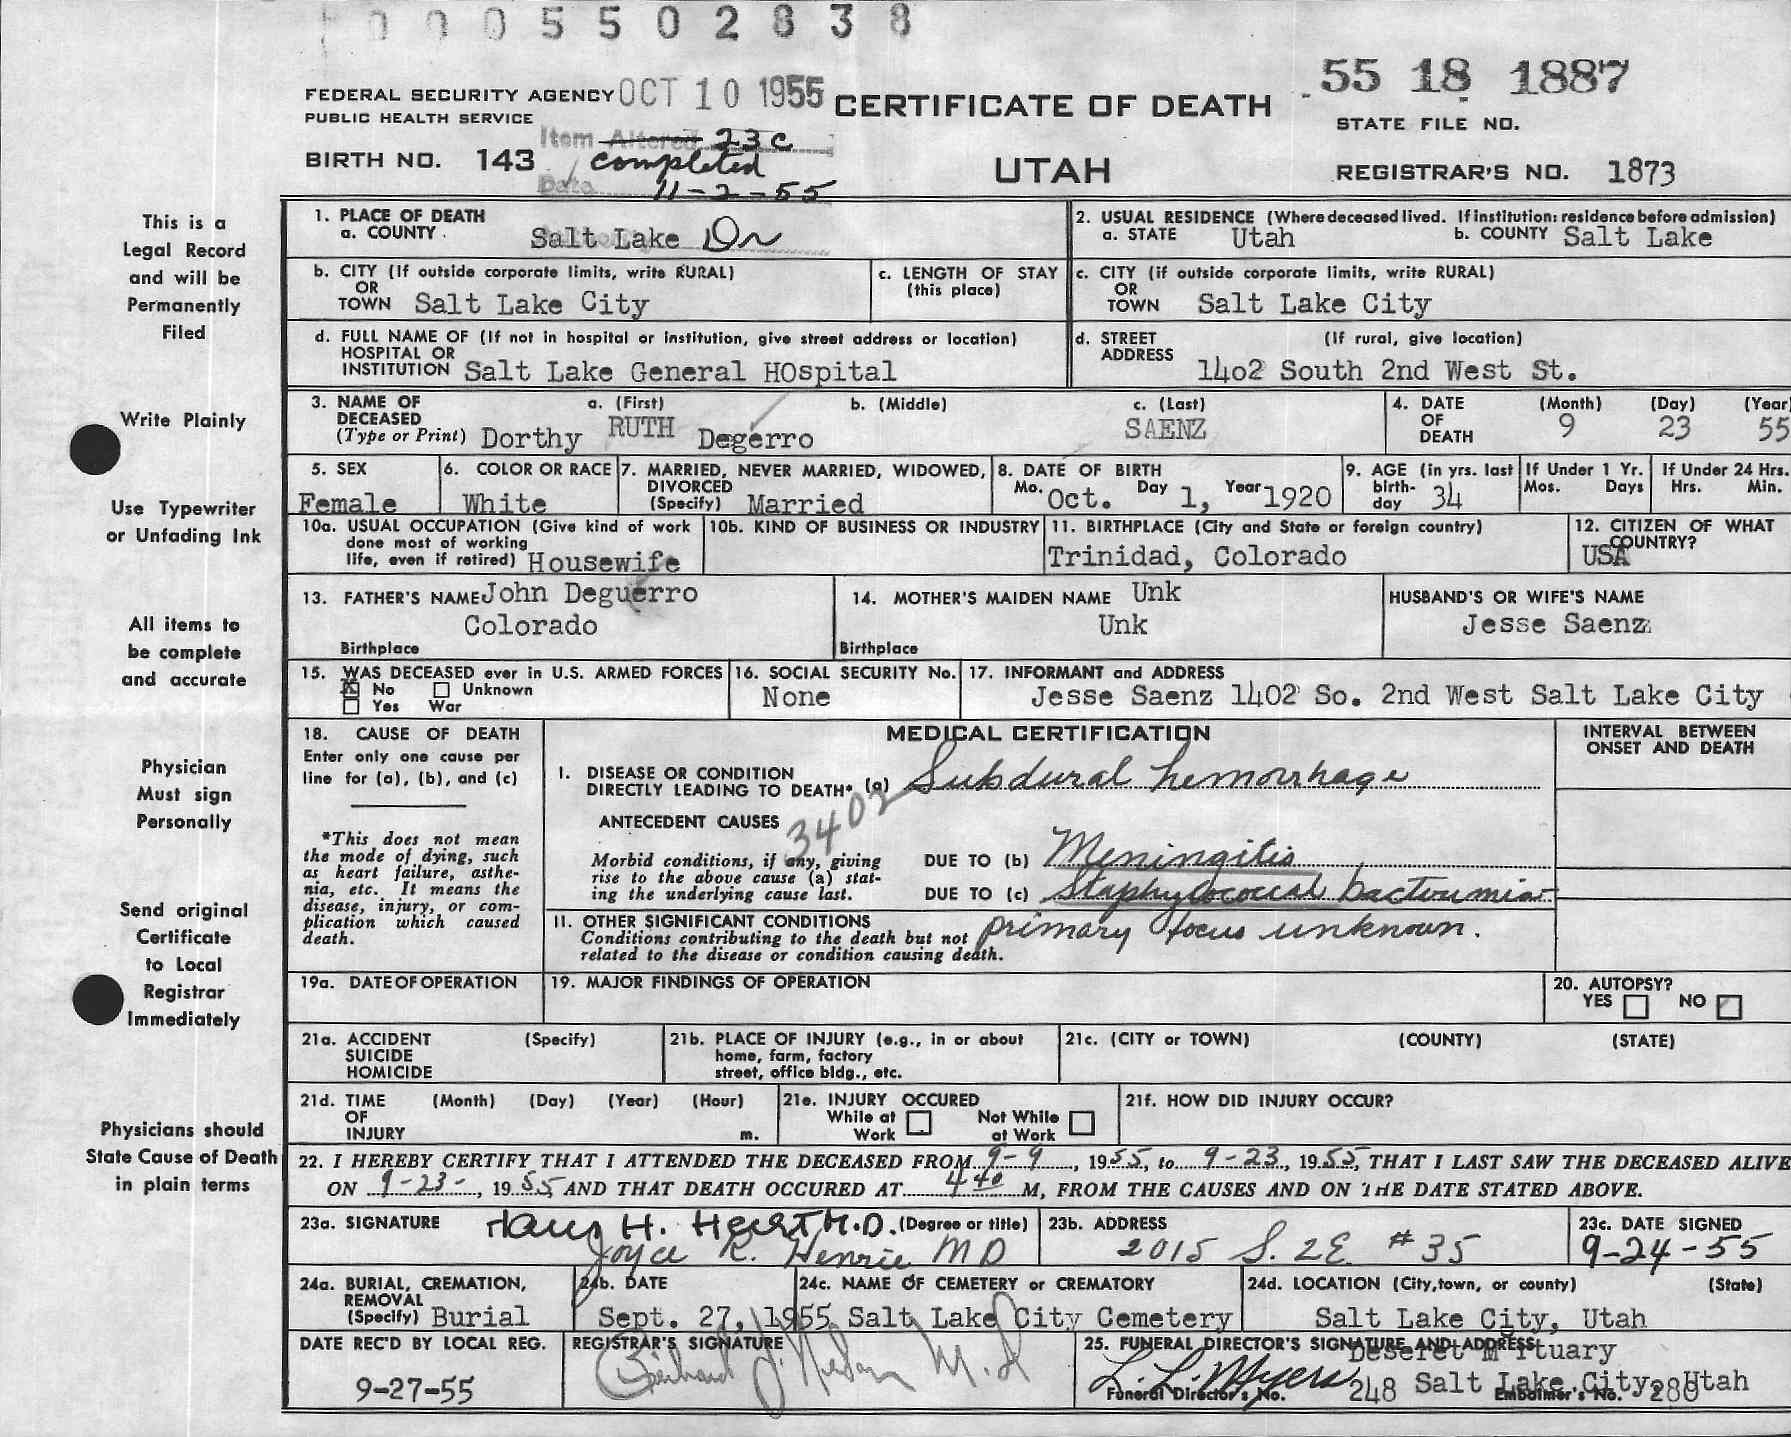 0005502838
FEDERAL SECURITY AGENCY OCT 10 1955 CERTIFICATE OF DEATH 55 18 1887
PUBLIC HEALTH SERVICE STATE FILE NO.
Item Altered 23c
BIRTH NO. 143 completed UTAH REGISTRAR'S NO. 1873
Date 11-2-55
This is a
Legal Record
and will be
Permanently
Filed
Write Plainly
Use Typewriter
or Unfading Ink
All items to
be complete
and accurate
Physician
Must sign
Personally
Send original
Certificate
to Local
Registrar
Immediately
Physicians should
State Cause of Death
in plain terms
1. PLACE OF DEATH
a. COUNTY Salt Lake
2. USUAL RESIDENCE (Where deceased lived. If institution: residence before admission)
a. STATE Utah b. COUNTY Salt Lake
b. CITY (If outside corporate limits, write RURAL)
OR
TOWN Salt Lake City
c. LENGTH OF STAY
(this place)
c. CITY (if outside corporate limits, write RURAL)
OR
TOWN Salt Lake City
d. FULL NAME OF (If not in hospital or institution, give street address or location)
HOSPITAL OR
INSTITUTION Salt Lake General HOspital
d. STREET (If rural, give location)
ADDRESS
14o2 South 2nd West St.
3. NAME OF a. (First) b. (Middle) c. (Last)
DECEASED
(Type or Print) Dorthy RUTH Degerro SAENZ
4. DATE (Month) (Day) (Year)
OF
DEATH 9 23 55
5. SEX
Female
6. COLOR OR RACE
White
7. MARRIED, NEVER MARRIED, WIDOWED,
DIVORCED
(Specify) Married
8. DATE OF BIRTH
Mo. Oct. Day 1, Year 1920
9. AGE (in yrs. last
birth-
day 34
If Under 1 Yr.
Mos. Days
If Under 24 Hrs.
Hrs. Min.
10a. USUAL OCCUPATION (Give kind of work
done most of working
life, even if retired) Housewife
10b. KIND OF BUSINESS OR INDUSTRY
11. BIRTHPLACE (City and State or foreign country)
Trinidad, Colorado
12. CITIZEN OF WHAT
COUNTRY?
USA
13. FATHER'S NAME John Deguerro
Colorado
Birthplace
14. MOTHER'S MAIDEN NAME Unk
Unk
Birthplace
HUSBAND'S OR WIFE'S NAME
Jesse Saenz
15. WAS DECEASED ever in U.S. ARMED FORCES
No Unknown
Yes War
16. SOCIAL SECURITY No.
None
17. INFORMANT and ADDRESS
Jesse Saenz 1402 So. 2nd West Salt Lake City
18. CAUSE OF DEATH
Enter only one cause per
line for (a), (b), and (c)
*This does not mean
the mode of dying, such
as heart failure, asthe-
nia, etc. It means the
disease, injury, or com-
plication which caused
death.
MEDICAL CERTIFICATION
I. DISEASE OR CONDITION
DIRECTLY LEADING TO DEATH* (a) Subdural hemorrhage
ANTECEDENT CAUSES 3402
Morbid conditions, if any, giving DUE TO (b) Meningitis
rise to the above cause (a) stat-
ing the underlying cause last. DUE TO (c) Staphylococcal bacteremia
II. OTHER SIGNIFICANT CONDITIONS
Conditions contributing to the death but not primary focus unknown.
related to the disease or condition causing death.
INTERVAL BETWEEN
ONSET AND DEATH
19a. DATE OF OPERATION
19. MAJOR FINDINGS OF OPERATION
20. AUTOPSY?
YES NO
21a. ACCIDENT (Specify)
SUICIDE
HOMICIDE
21b. PLACE OF INJURY (e.g., in or about
home, farm, factory
street, office bldg., etc.
21c. (CITY or TOWN) (COUNTY) (STATE)
21d. TIME (Month) (Day) (Year) (Hour)
OF
INJURY m.
21e. INJURY OCCURED
While at Not While
Work at Work
21f. HOW DID INJURY OCCUR?
22. I HEREBY CERTIFY THAT I ATTENDED THE DECEASED FROM 9-9, 1955, to 9-23, 1955, THAT I LAST SAW THE DECEASED ALIVE
ON 9-23-, 1955 AND THAT DEATH OCCURED AT 4 40 M, FROM THE CAUSES AND ON THE DATE STATED ABOVE.
23a. SIGNATURE H. M.D. (Degree or title)
Joyce R. Henrie MD
23b. ADDRESS
2015 S. 2E #35
23c. DATE SIGNED
9-24-55
24a. BURIAL, CREMATION,
REMOVAL
(Specify) Burial
24b. DATE
Sept. 27, 1955
24c. NAME OF CEMETERY or CREMATORY
Salt Lake City Cemetery
24d. LOCATION (City, town, or county) (State)
Salt Lake City, Utah
DATE REC'D BY LOCAL REG.
9-27-55
REGISTRAR'S SIGNATURE
M.D
25. FUNERAL DIRECTOR'S SIGNATURE AND ADDRESS
Deseret M rtuary
L. L. Myers 248 Salt Lake City, Utah
Funeral Director's No. Embalmer's No. 280